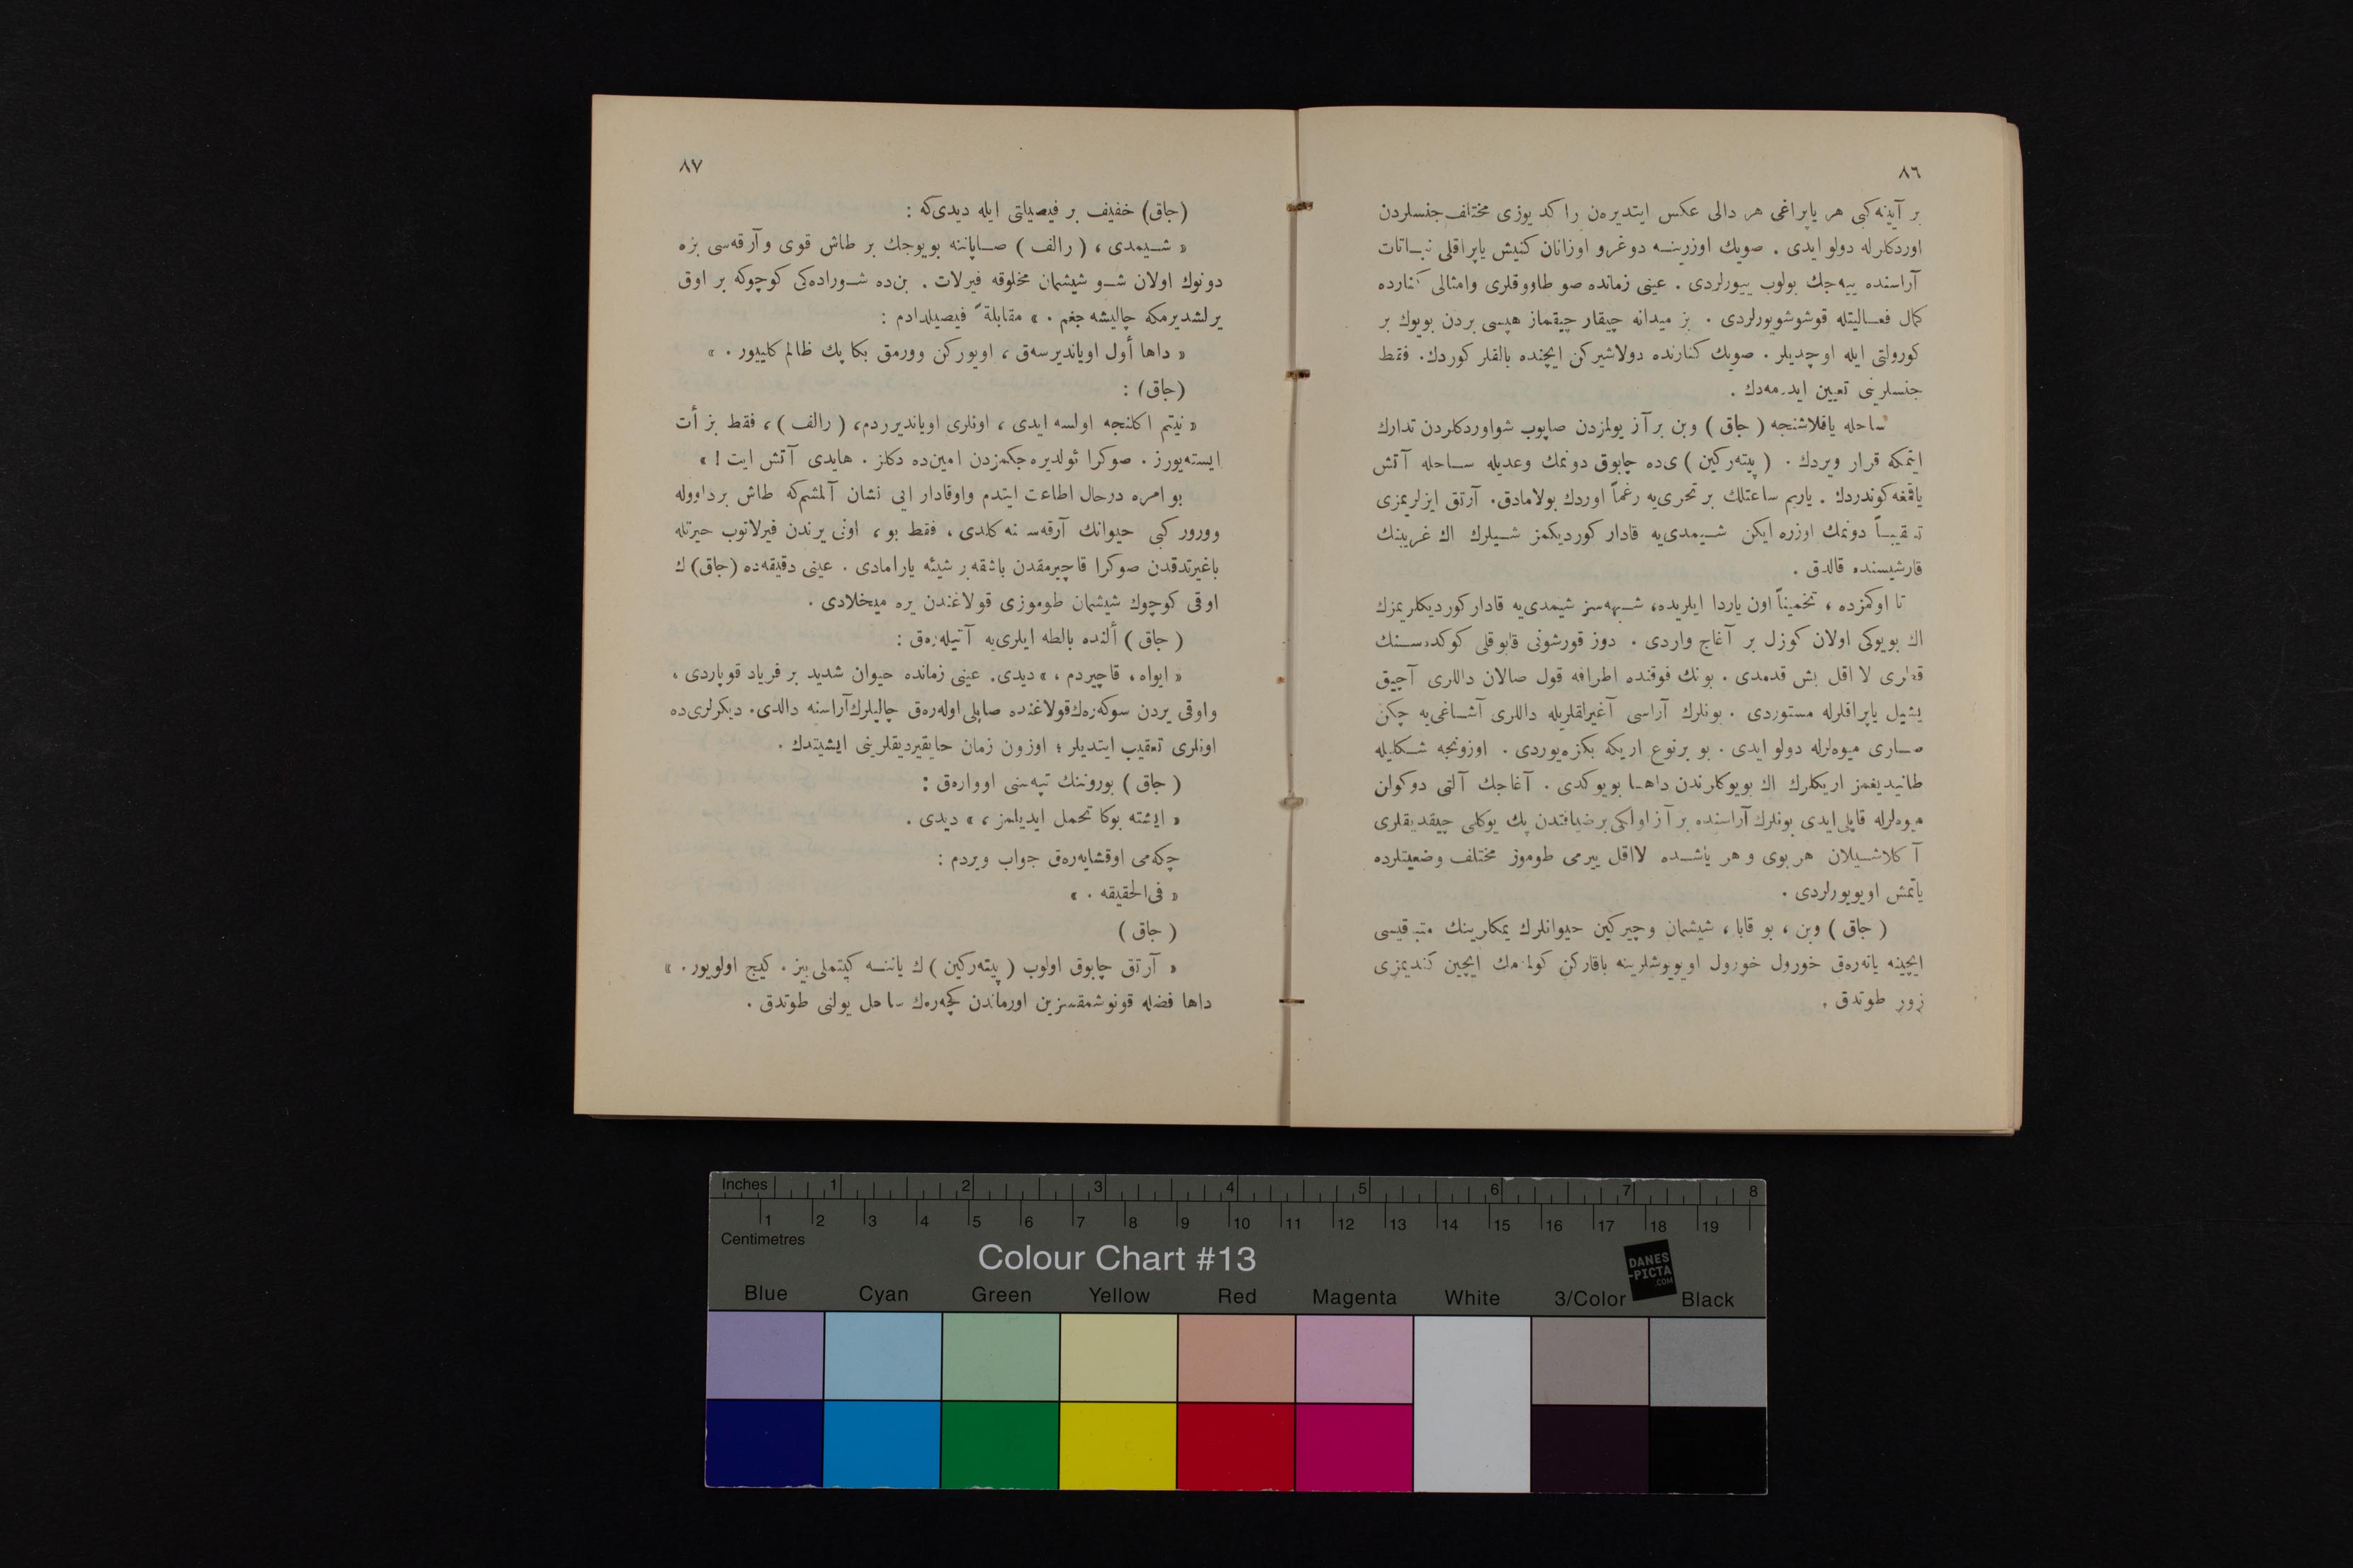 ٨٦
بر آیینه‌كبی هر یاپراغی هر دالی عكس ایتدیره‌ن راكد یوزی مختلف جنسلردن
اوردكلرله دولو ایدی . صویك اوزرینــه دوغرو اوزانان كنیش یاپراقلی نبــاتات
آراسنده ییه‌جك بولوب ییورلردی . عینی زمانده صو طاووقلری وامثالی كنارده
كمال فعــالیتله قوشوشویورلردی . بز میدانه چیقار چیقماز هپسی بردن بویوك بر
كورولتی ایله اوچدیلر . صویك كنارنده دولاشیركن ایچنده بالقلر كوردك. فقط
جنسلرینی تعیین ایده‌مه‌دك .
ساحله یاقلاشنجه ( جاق ) وبن بر آز یولمزدن صاپوب شواوردكلردن تدارك
ایتمكه قرار ویردك . ( پیته‌ركین ) ی‌ده چابوق دونمك وعدیله ســاحله آتش
یاقمغه‌كوندردك . یاریم ساعتلك بر تحری‌یه رغماً اوردك بولامادق. آرتق ایزلریمزی
تعقیبــاً دونمك اوزره ایكن شــیمدی‌یه قادار كوردیكمز شــیلرك اك غریبنك
قارشیسنده قالدق .
تا اوكمزده ، تخمیناً اون یاردا ایلریده، شــبهه‌سز شیمدی‌یه قادار كوردیكلریمزك
اك بویوكی اولان كوزل بر آغاج واردی . دوز قورشونی قابوقلی كوكده‌ســنك
قطری لا اقل بش قدمدی . بونك فوقنده اطرافه قول صالان داللری آچیق
یشیل یاپراقلرله مستوردی . بونلرك آراسی آغیرلقلریله داللری آشــاغی‌یه چكن
صــاری میوه‌لرله دولو ایدی . بو برنوع اریكه بكزه‌یوردی . اوزونجه شــكلیله
طانیدیغمز اریكلرك اك بویوكلرندن داهــا بویوكدی . آغاجك آلتی دوكولن
میوه‌لرله قاپلی‌ایدی بونلرك آراسنده بر آز اولكی برضیافتدن پك یوكلی چیقدیقلری
آكلاشــیلان هربوی و هر یاشــده لااقل ییرمی طوموز مختلف وضعیتلرده
یاتمش اویویورلردی .
( جاق ) وبن ، بو قابا ، شیشمان وچیركین حیوانلرك یمكلرینك متبقیسی
ایچینه یاته‌ره‌ق خورول خورول اویویوشلرینه باقاركن كولمه‌مك ایچین كندیمزی
زور طوتدق .
٨٧
(جاق) خفیف بر فیصیلتی ایله دیدی‌كه :
« شــیمدی ، ( رالف ) صــاپاننه بویوجك بر طاش قوی وآرقه‌سی بزه
دونوك اولان شــو شیشمان مخلوقه فیرلات . بن‌ده شــوراده‌كی كوچوكه بر اوق
یرلشدیرمكه چالیشه‌جغم . » مقابلةً فیصیلدادم :
« داها أول اویاندیرسه‌ق ، اویوركن وورمق بكا پك ظالم كلییور . »
(جاق) :
« نیتم اكلنجه اولسه ایدی ، اونلری اویاندیرردم، ( رالف ) ، فقط بز أت
ایسته‌یورز . صوكرا ئولدیره‌جكمزدن امین‌ده دكلز . هایدی آتش ایت ! »
بو امره درحال اطاعت ایتدم واوقادار ایی نشان آلمشم‌كه طاش برداووله
وورور كبی حیوانك آرقه‌سنه كلدی ، فقط بو ، اونی یرندن فیرلاتوب حیرتله
باغیرتدقدن صوكرا قاچیرمقدن باشقه‌بر شیئه یارامادی . عینی دقیقه‌ده (جاق) ك
اوقی كوچوك شیشمان طوموزی قولاغندن یره میخلادی .
( جاق ) ألنده بالطه ایلری‌یه آتیله‌ره‌ق :
« ایواه ، قاچیردم ، » دیدی. عینی زمانده حیوان شدید بر فریاد قوپاردی ،
واوقی یردن سوكه‌ره‌ك‌قولاغنده صاپلی‌اوله‌ره‌ق چالیلرك‌آراسنه دالدی. دیكرلری‌ده
اونلری تعقیب ایتدیلر ؛ اوزون زمان حایقیردیقلرینی ایشیتدك .
( جاق ) بورونك تپه‌سنی اوواره‌ق :
« ایشته بوكا تحمل ایدیلمز ، » دیدی .
چكه‌می اوقشایه‌ره‌ق جواب ویردم :
« فی‌الحقیقه . »
( جاق )
« آرتق چابوق اولوب ( پیته‌ركین ) ك یاننــه كیتملی‌ییز . كیج اولویور . »
داها فضله قونوشمقسزین اورماندن كچه‌رك ساحل یولنی طوتدق .
Inches 1 2 3 4 5 6 7 8
1 2 3 4 5 6 7 8 9 10 11 12 13 14 15 16 17 18 19
Centimetres
Colour Chart #13
DANES
-PICTA
.COM
Blue Cyan Green Yellow Red Magenta White 3/Color Black